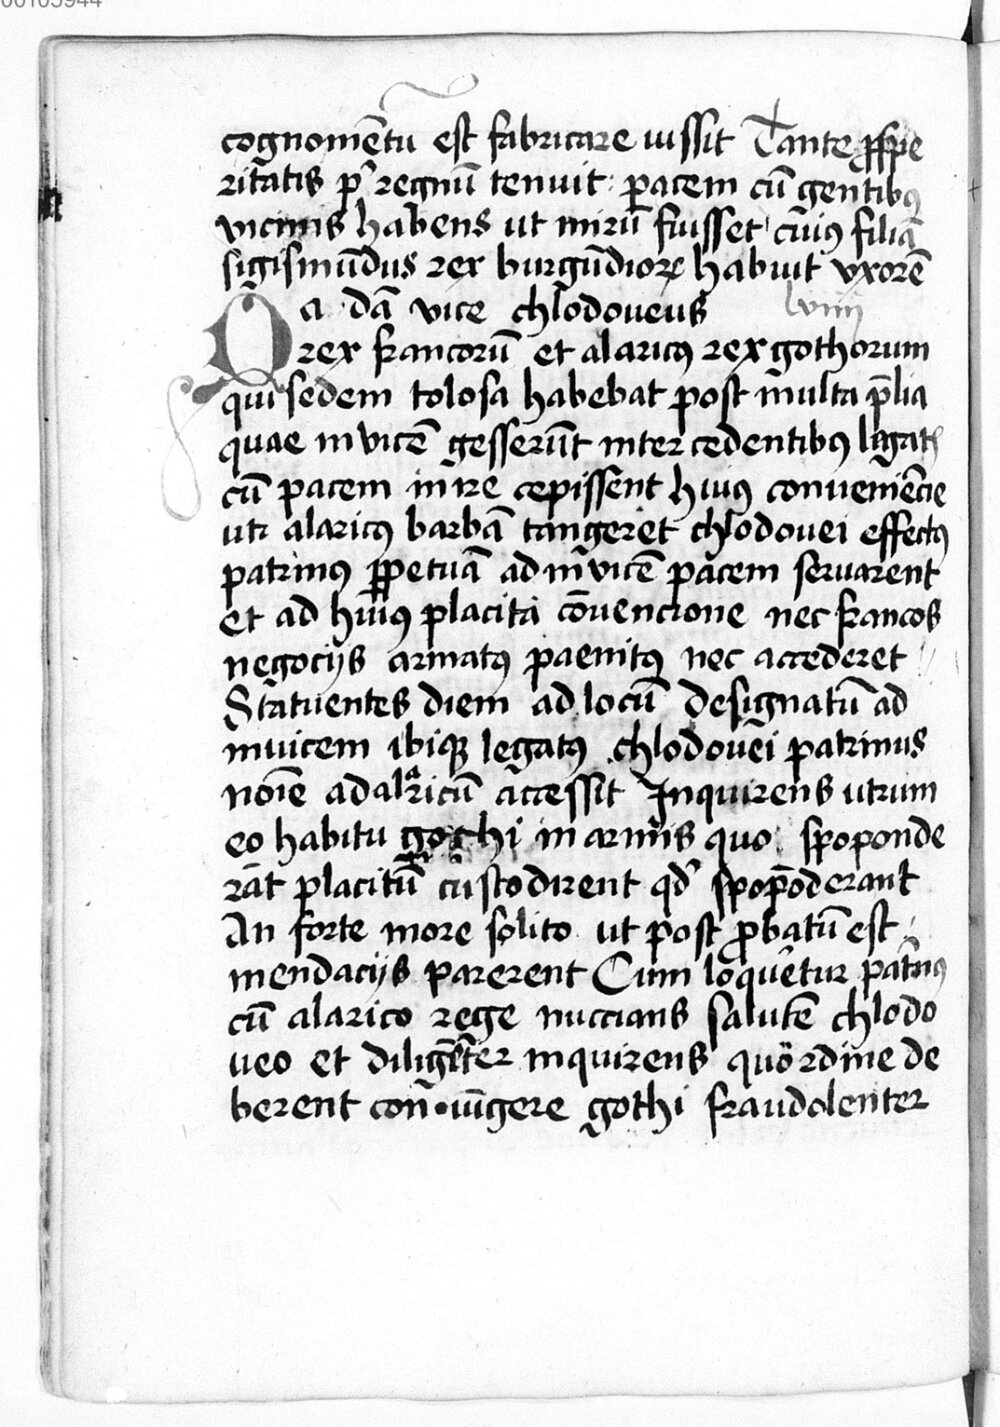 cognomētū est fabricare iussit Tante ꝓspe
ritatis pꝰ regnū tenuit pacem cū gentibꝰ
vicinis habens ut mirū fuisset cuiꝰ filiā
sigismūdus rex burgūdioꝝ habuit vxorē
Qa dā vice chlodoueus lviiij
rex francorū et alaricꝰ rex gothorum
qui sedem tolosa habebat post multa p̄lia
quae invicē gesserūt intercedentibꝰ legat
cū pacem inire cepissent huiꝰ conueniēcie
uti alaricꝰ barbā tangeret chlodouei effectꝰ
patrinꝰ ꝑpetuā ad invicē pacem seruarent
et ad huiꝰ placita cōuencione nec francos
negocijs armatꝰ paenitꝰ nec accederet
Statuentes diem ad locū designatū ad
inuicem ibiqꝫ legatꝰ chlodouei patrinus
noīe ad alaricū accessit Inquirens utrum
eo habitu gothi in armis quo spoponde
rāt placitū custodirent qd' spopōderant
An forte more solito ut post ꝓbatū est
mendacijs parerent Cum loquētur patrinꝰ
cū alarico rege nuccians salutē chlodo
ueo et diligēter inquirens quo ordine de
berent coniūgere gothi fraudolenter